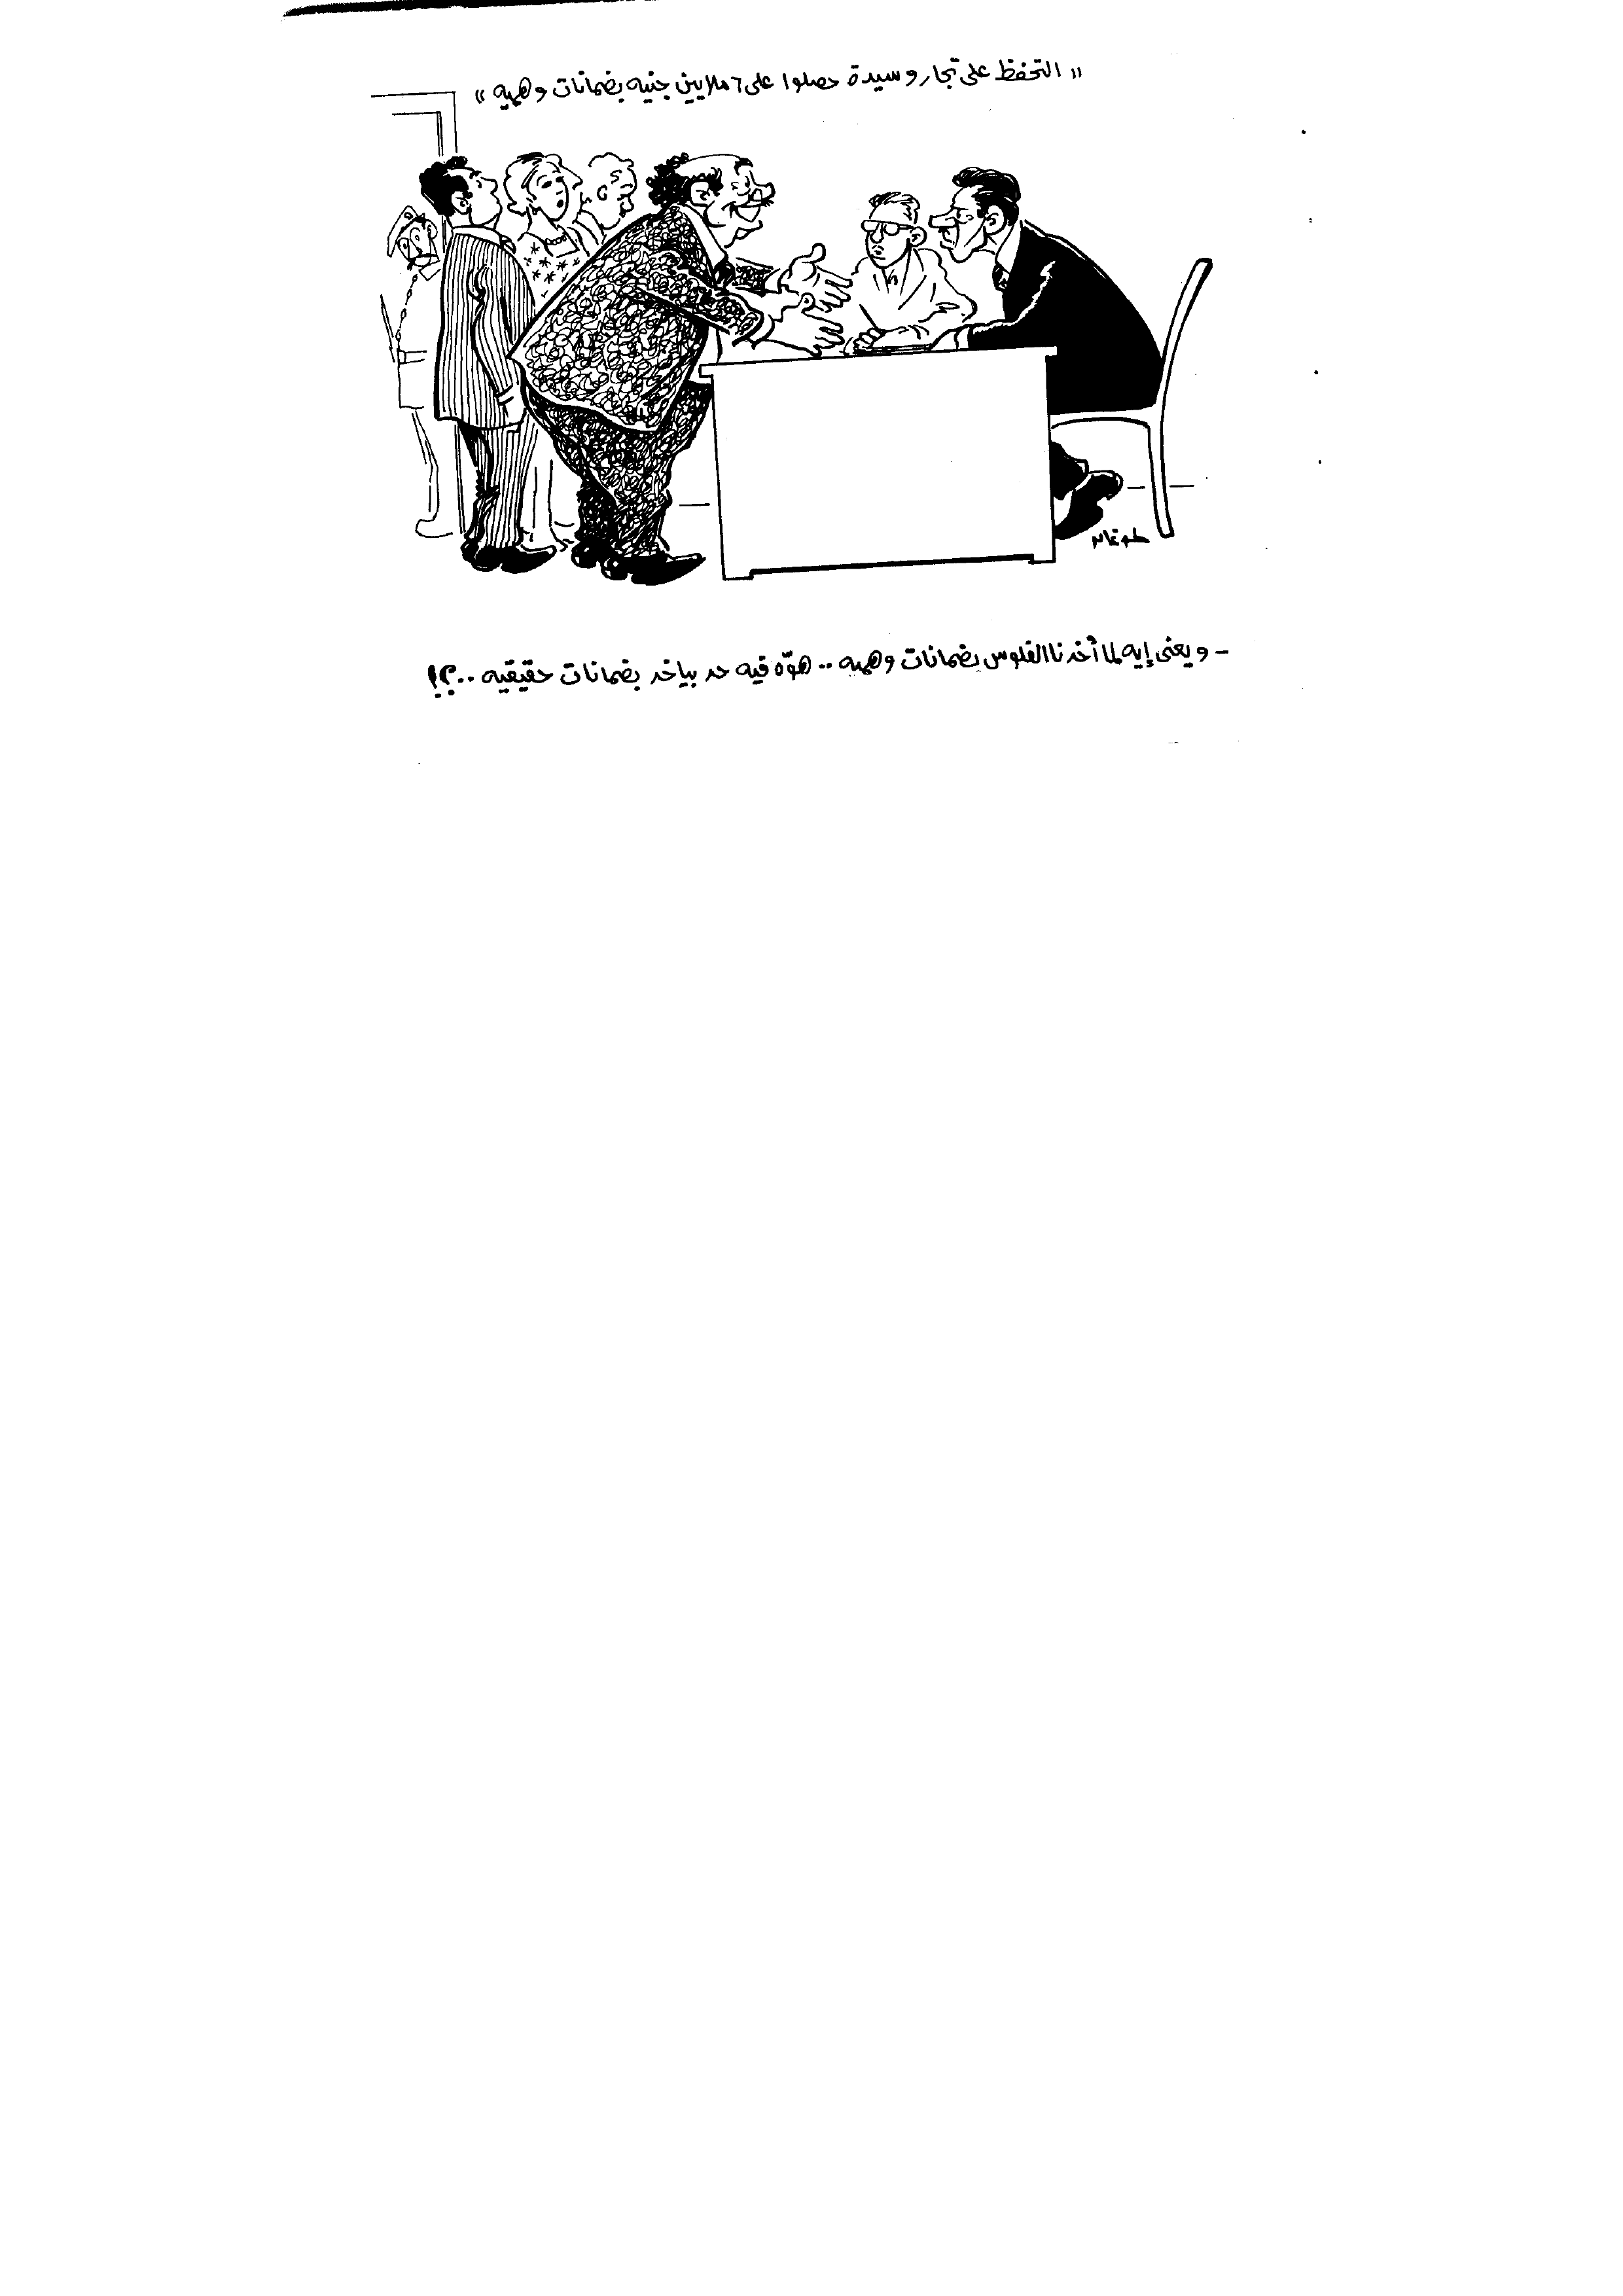 " التحفظ على تجار وسيدة حصلوا على ٦ ملايين جنيه بضمانات وهميه "
طوغان
- ويعنى إيه لما أخدنا الفلوس بضمانات وهميه .. هوّه فيه حد بياخد بضمانات حقيقيه ..؟!